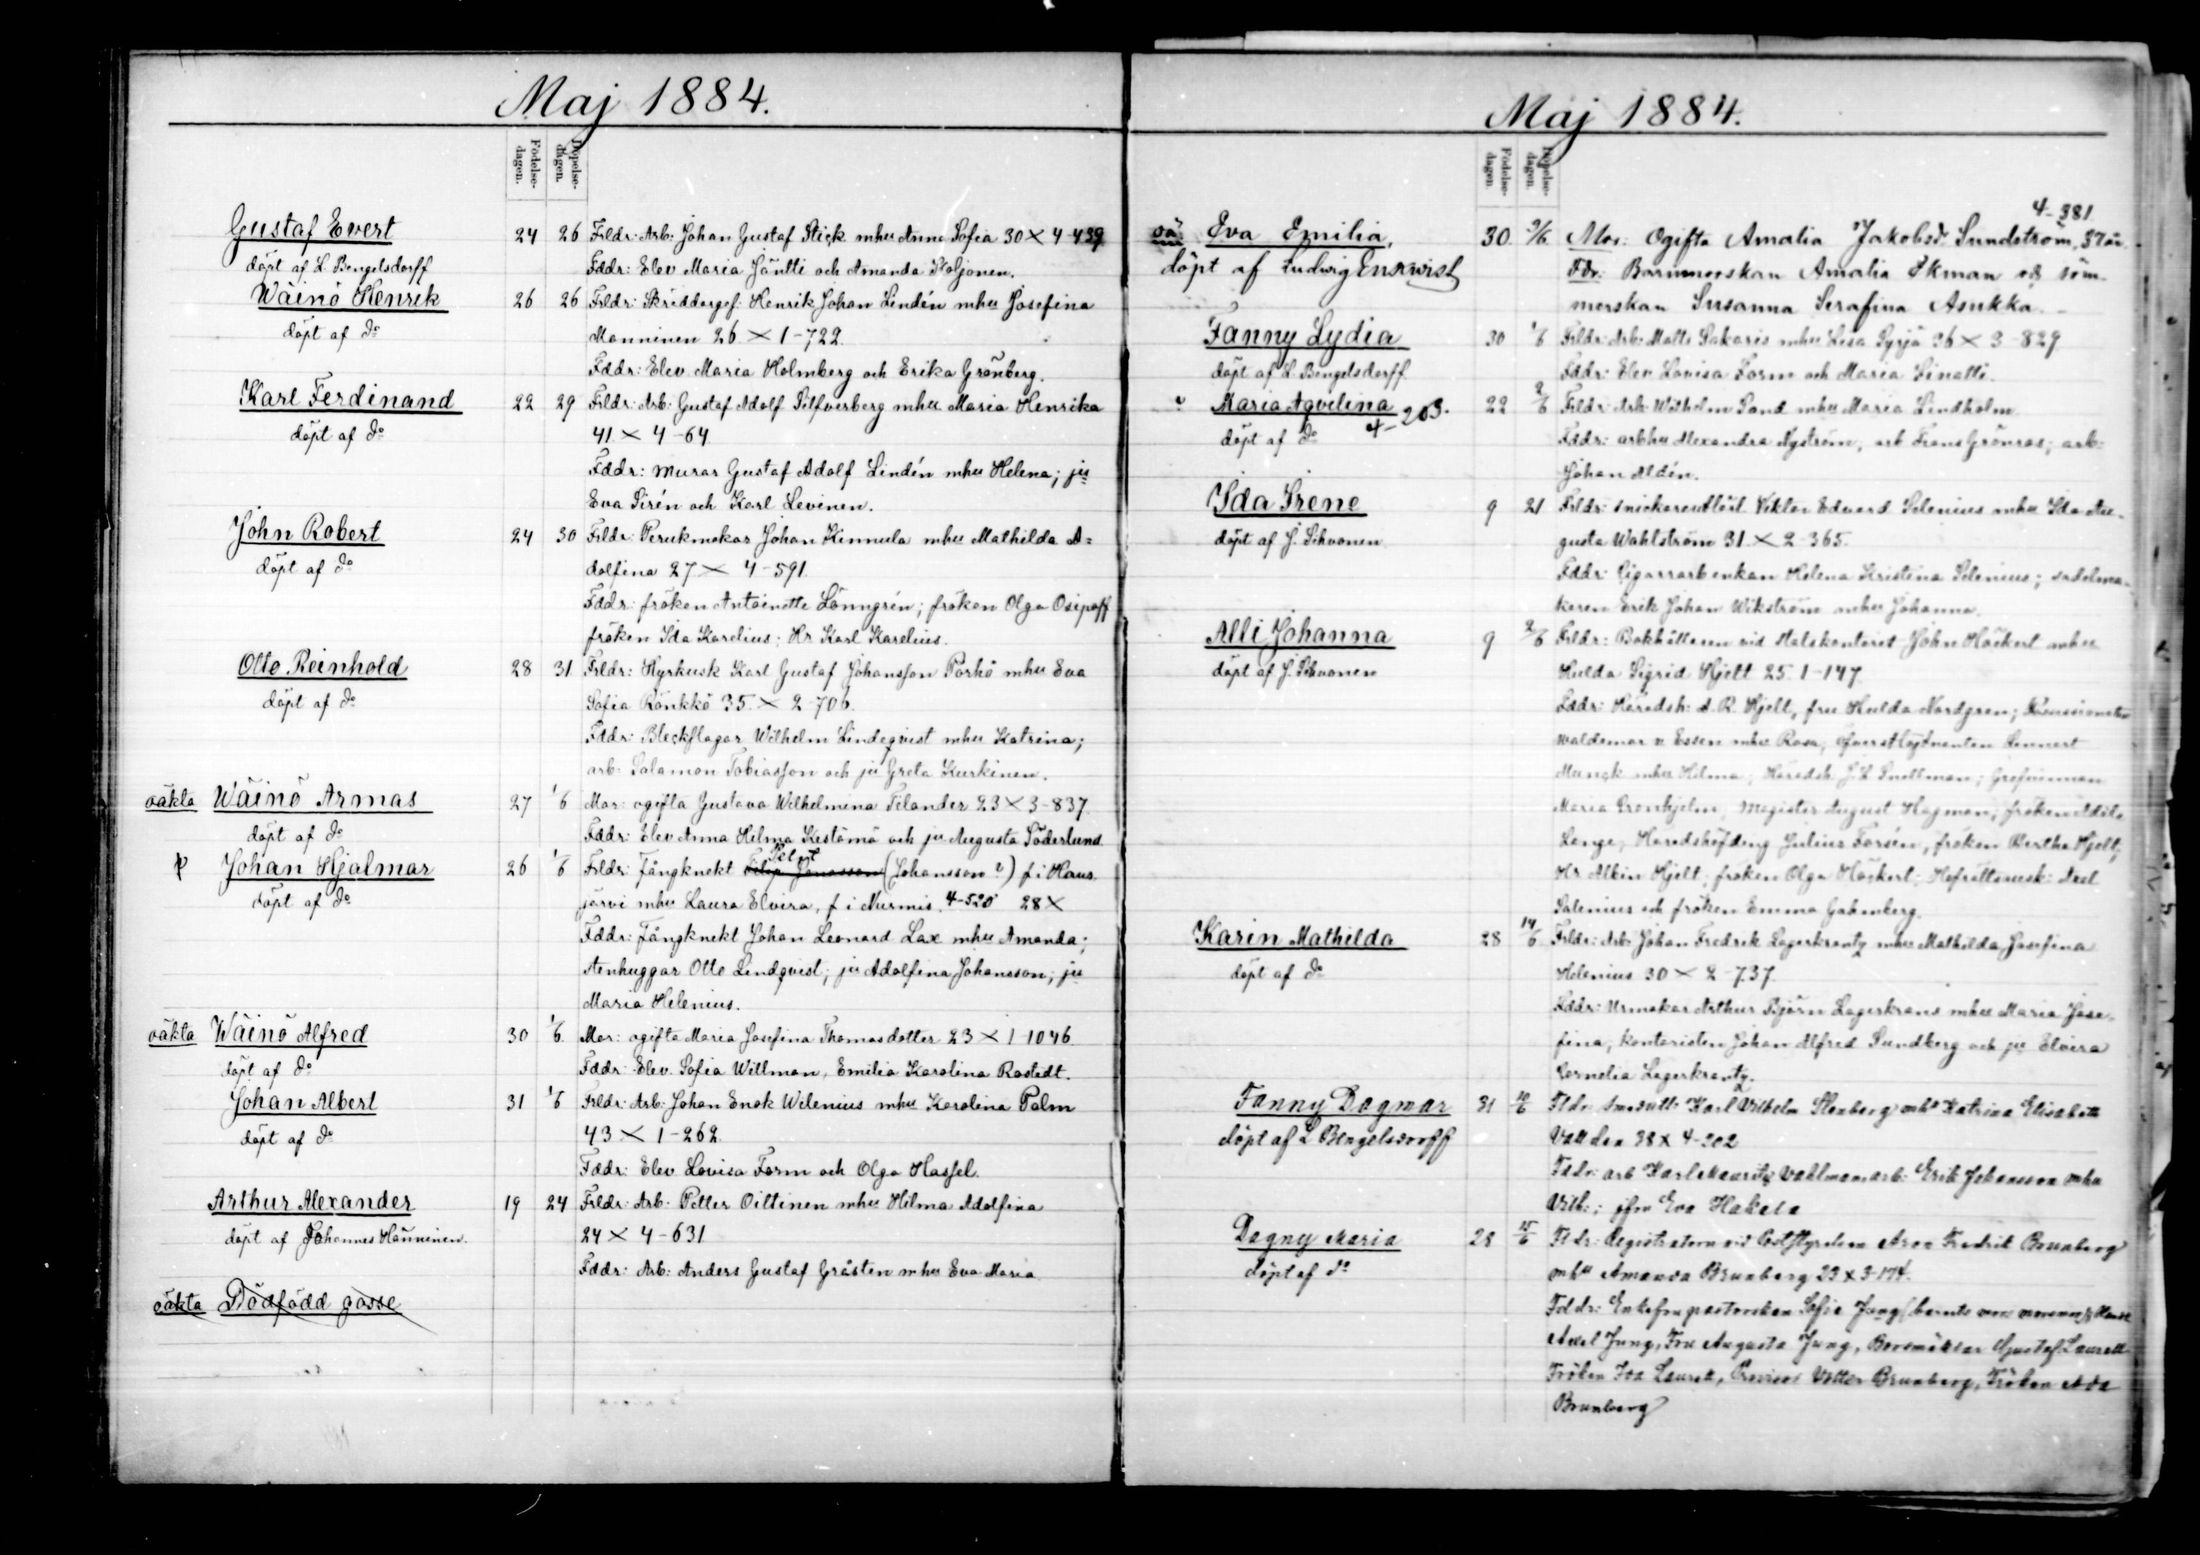 Maj 1884.
Födelse-dagen. Döpelse-dagen.
Gustaf Evert 24 26 Frldr: Arb. Johan Gustaf Stick mhu Anna Sofia 30 × 4-439
döpt af L Bengelsdorff Fddr: Elev Maria Jäntti och Amanda
Wäinö Henrik 26 26 Frldr: Skräddargef. Henrik Johan Lindén mhu Josefina
döpt af do Manninen 26 × 1-722.
Fddr: Elev. Maria Holmberg och Erika Grönberg.
Karl Ferdinand 22 29 Frldr: Arb: Gustaf Adolf Silfverberg mhu Maria Henrika
döpt af do 41 × 4-64
Fddr: murar Gustaf Adolf Lindén mhu Helena; ju
Eva Sirén och Karl Levinen.
John Robert 24 30 Frldr: Perukmakar Johan Kinnula mhu Mathilda A=
döpt af do dolfina 27 × 4-591.
Fddr: fröken Antoinette Lönngrén; fröken Olga Osipoff
fröken Ida Karelius; Hr Karl Karelius.
Otto Reinhold 28 31 Frldr: Hyrkusk Karl Gustaf Johansson Porhö mhu Eva
döpt af do Sofia Rönkkö 35. × 2-706.
Fddr: Bleckslagar Wilhelm Lindeqvist mhu Katrina;
arb: Salamon Tobiasson och ju Greta Kurkinen.
oäkta Wäinö Armas 27 1/6 Mor: ogifta Gustava Wilhelmina Filander 23 × 3-837
döpt af do Fddr: Elev Anna Helma Kestämö och ju Augusta Söderlund
Johan Hjalmar 26 1/6 Frldr: fångknekt Filip Jonasson (Johansson?) f i Haus
döpt af do järvi mhu Laura Elvira, f i Nurmis. 4-520 28 ×
Fddr: fångknekt Johan Leonard Lax mhu Amanda;
stenhuggar Otto Lindqvist; ju Adolfina Johansson; ju
Maria Helenius.
oäkta Wäinö Alfred 30 1/6 Mor: ogifta Maria Josefina Thomasdotter 23 × 1-1046
döpt af do Fddr: Elev. Sofia Willman, Emilia Karolina Rostedt.
Johan Albert 31 1/6 Frldr: Arb: Johan Enok Wilenius mhu Karolina Palm
döpt af do 43 × 1-262.
Fddr: Elev Lovisa Form och Olga Hassel.
Arthur Alexander 19 24 Frldr: Arb: Petter Oittinen mhu Hilma Adolfina
döpt af Johannes Hänninen. 24 × 4-631
Fddr: Arb: Anders Gustaf Gråsten mhu Eva Maria
oäkta Dödfödd gosse
Maj 1884.
Födelse-dagen. Döpelse-dagen.
4-381
oä: Eva Emilia, 30 Mor: Ogifta Amalia Jakobsd. Sundström, 37 år.
döpt af Ludwig Enqwist Fdr: Barnmorskan Amalia Ekman och söm-
merskan Susanna Serafina Asukka.
Fanny Lydia 30 1/6 Frldr: Arb: Matts Sakaris mhu Lisa Syrjä 26 × 3-829
döpt af L. Bengelsdorff Fddr: Elev Lovisa Form och Maria
Maria Aqvilina 4-203. 22 2/6 Frldr: Arb Wilhelm Sand mhu Maria Lindholm
döpt af do Fddr: arbhu Alexandra Nyström, arb Frans Grönroos; arb:
Johan Aldén.
Ida Irene 9 21 Frldr: Viktor Edvard Selenius mhu Ida Au-
döpt af J. Sihvonen gusta Wahlström 31 × 2-365.
Fddr: Cigarrarbenkan Helena Kristina Selenius; sadelma-
karen Erik Johan Wikström mhu Johanna.
Alli Johanna 9 2/6 Frldr: Bokhållaren vid Statskontoret John Höckert mhu
döpt af J. Sihvonen Hulda Sigrid Hjelt 25. 1-147.
Fddr: Häradsh: A. R. Hjelt, fru Hulda Nordgren;
Waldemar v Essen mhu Rosa; Lennart
Munck mhu Hilma; Häradsh. J. L Snellman; Grefvinnan
Maria Cronhjelm, Magister August Hagman; fröken
Lange; Häradshöfding Julius Forsén, fröken Bertha Hjelt;
Hr Albin Hjelt; fröken Olga Höckert; Axel
Salenius och fröken Emma Gahmberg.
Karin Mathilda 28 14/6 Frldr: Arb Johan Fredrik Lagerkrantz mhu Mathilda Josefina
döpt af do Helenius 30 × 2-737.
Fddr: Urmakar Arthur Björn Lagerkrans mhu Maria Jose-
fina; kontoristen Johan Alfred Sundberg och ju Elvira
Cornelia Lagerkrantz.
Fanny Dagmar 31 10/6 Karl Vilhelm Stenberg mhu Katrina Elisabeth
döpt af L Bengelsdorff 38 × 4-202
Fddr: arb Karl Mauritz Wahlman arb: Erik Johansson mhu
Vilh:; jfru Eva Hakala
Dagny Maria 28 Registratorn vid Poststyrelsen Aron Fredrik Brunberg
döpt af do mhu Amanda Brunberg 23 × 3-174.
Fddr: Enkefru pastorskan Sofie Jung
Axel Jung, Fru Augusta Jung, Gustaf Laurell
Fröken Laurell, Provisor Brunberg, Fröken Ada
Brunberg